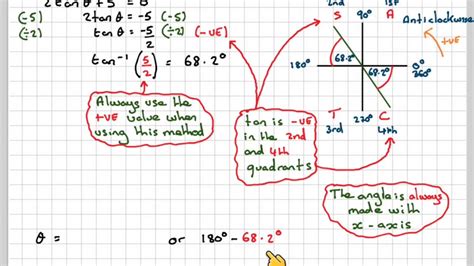 2tanθ + 5 = 0
(-5) 2tanθ = -5 (-5)
(÷2) tanθ = -5/2 (÷2)
(-VE)
tan⁻¹(5/2) = 68.2°
Always use the
+VE value when
using this method
tan is -VE
in the 2nd
and 4th
quadrants
2nd 90° 1st
S A Anticlockwise
+VE
68.2°
180° 0°
68.2° 360°
T C
3rd 270° 4th
The angle is always
made with
x-axis
θ = or 180° - 68.2°